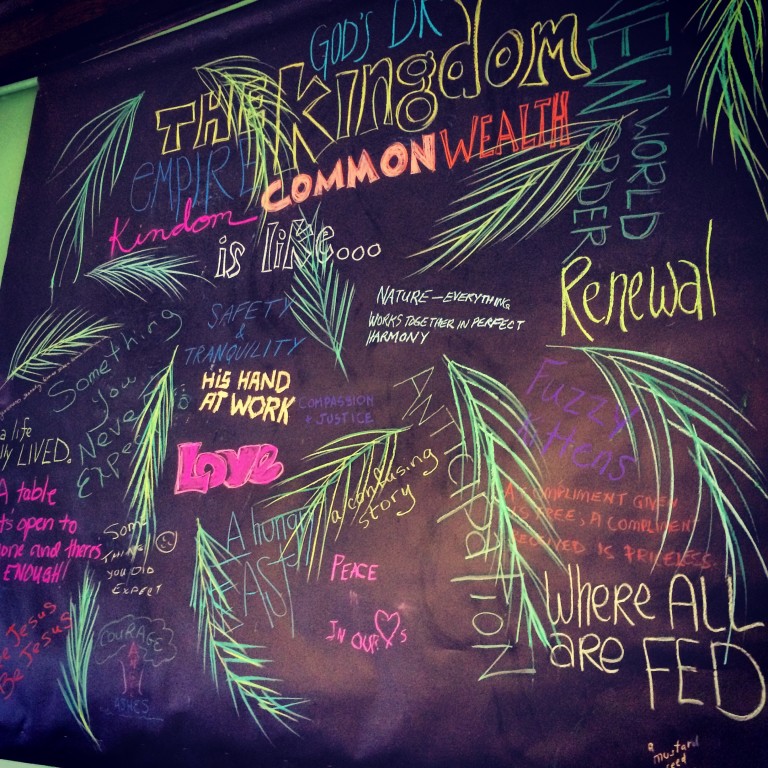 GOD'S
THE Kingdom
NEW WORLD
ORDER
EMPIRE
COMMONWEALTH
Kindom
is like...
Renewal
SAFETY
&
TRANQUILITY
NATURE—EVERYTHING
WORKS TOGETHER IN PERFECT
HARMONY
Something
you
Never
HIS HAND
AT WORK
COMPASSION
+ JUSTICE
ANTICIPATION
Fuzzy
kittens
a life
LIVED.
Love
a confusing
story
A table
open to
and there's
ENOUGH!
Some
THING
YOU DID
EXPECT
A
A COMPLIMENT GIVEN
IS FREE, A COMPLIMENT
RECEIVED IS PRICELESS.
PEACE
IN OUR ♡S
WHERE ALL
are FED
Jesus
Be Jesus
COURAGE
ASHES
a
mustard
seed